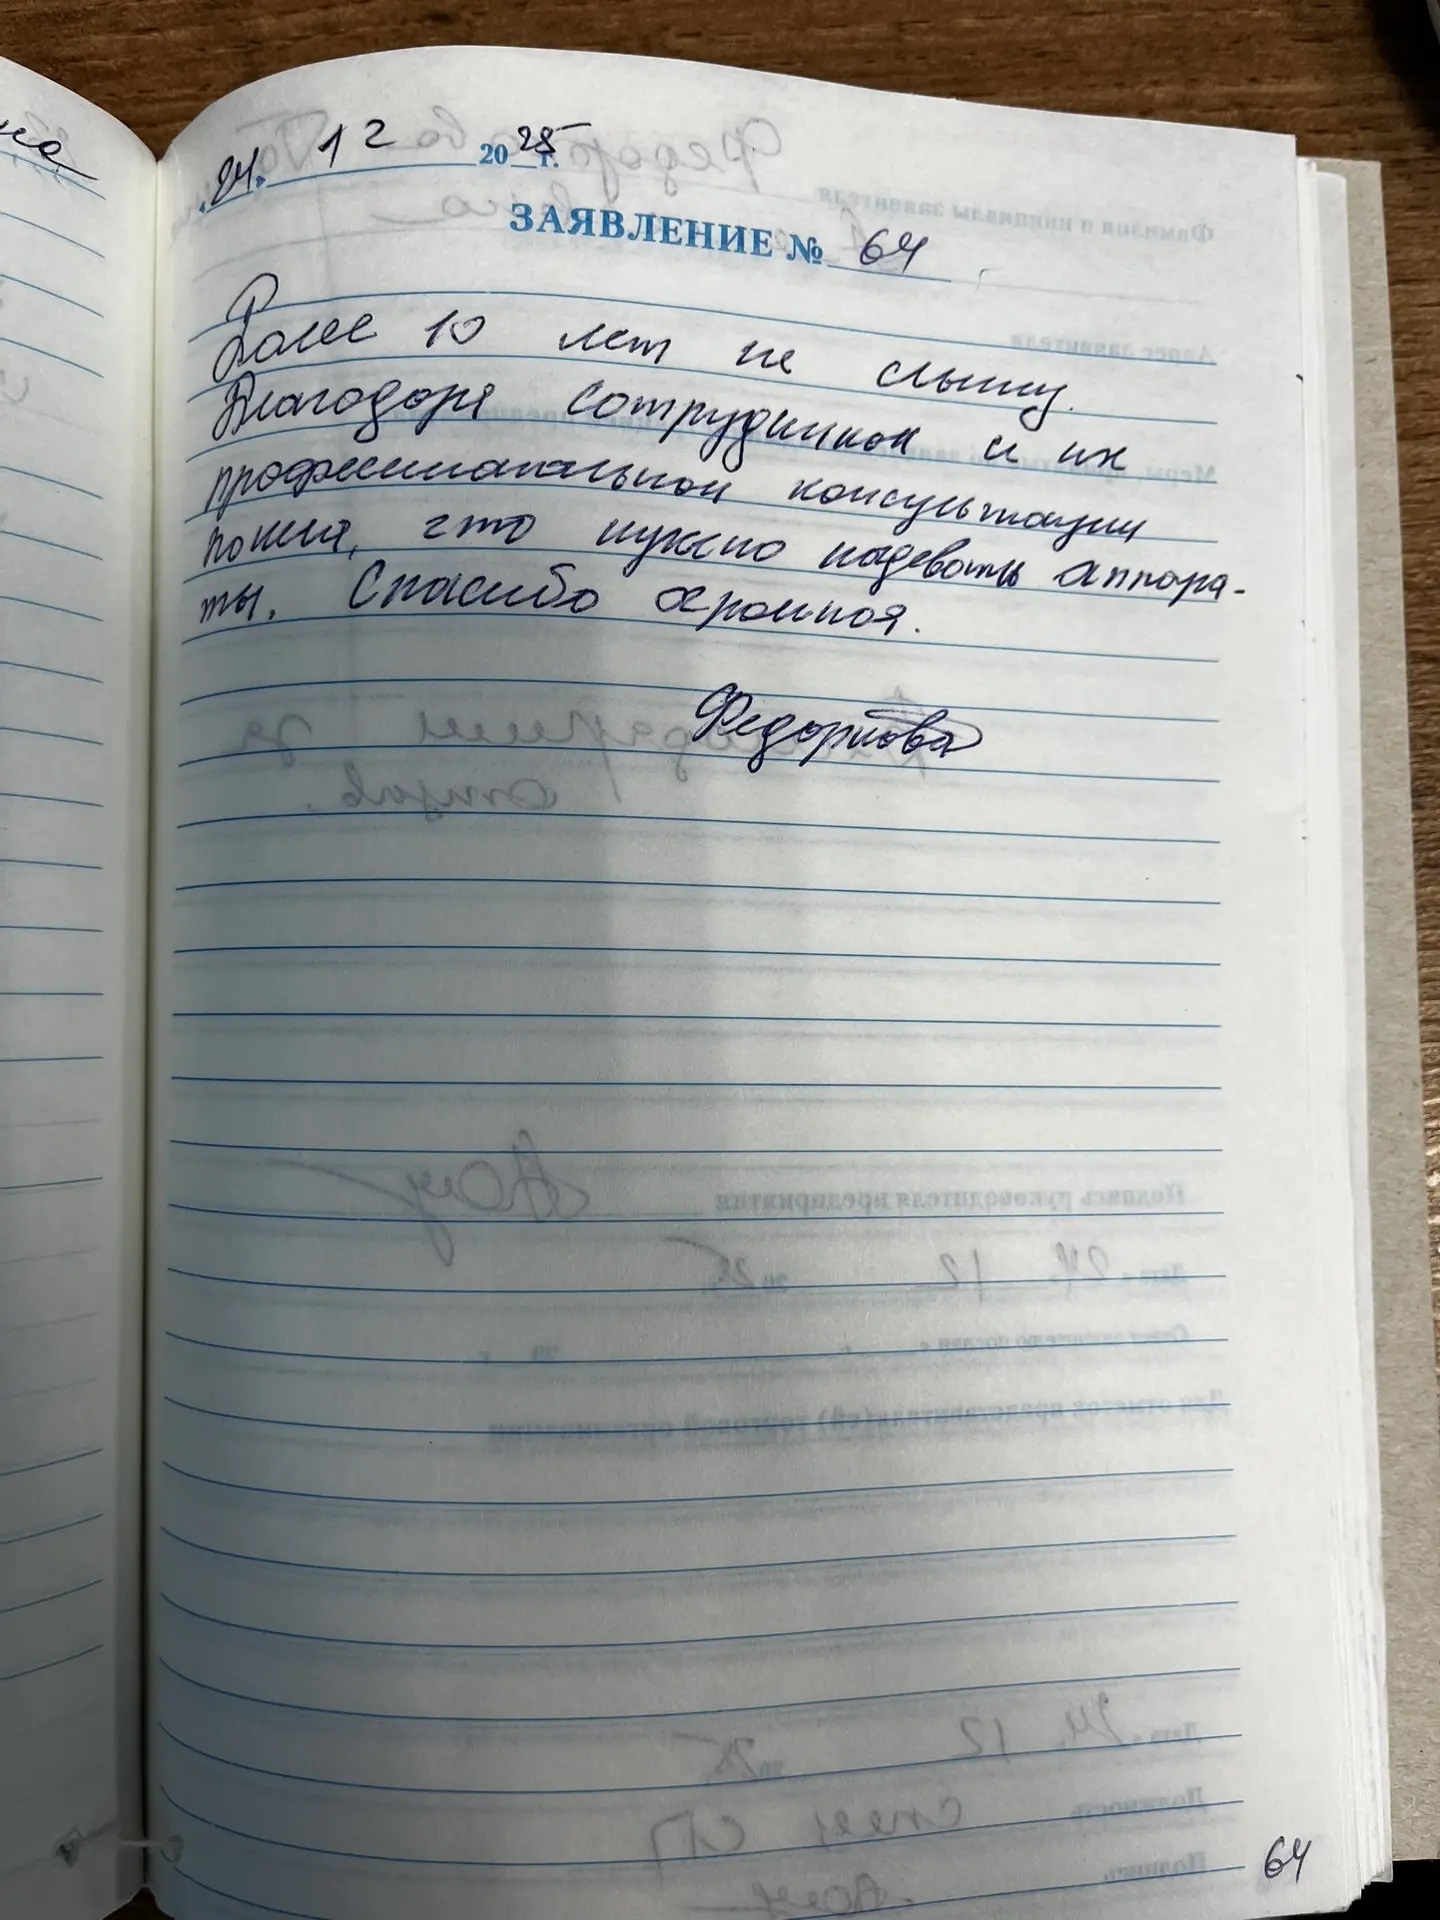 на
«24» 12 2025 г.
ЗАЯВЛЕНИЕ № 64
Более 10 лет не слышу.
Благодоря сотрудников и их
профессиональной консультации
поняла, что нужно надевать аппара-
ты. Спасибо огромное.
Федорцова
64